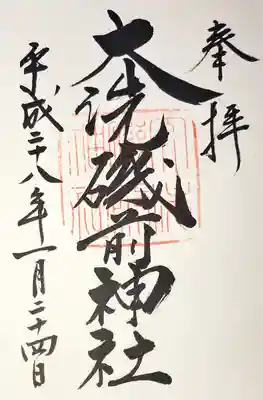 奉拝
大洗磯前神社
平成二十八年一月二十四日